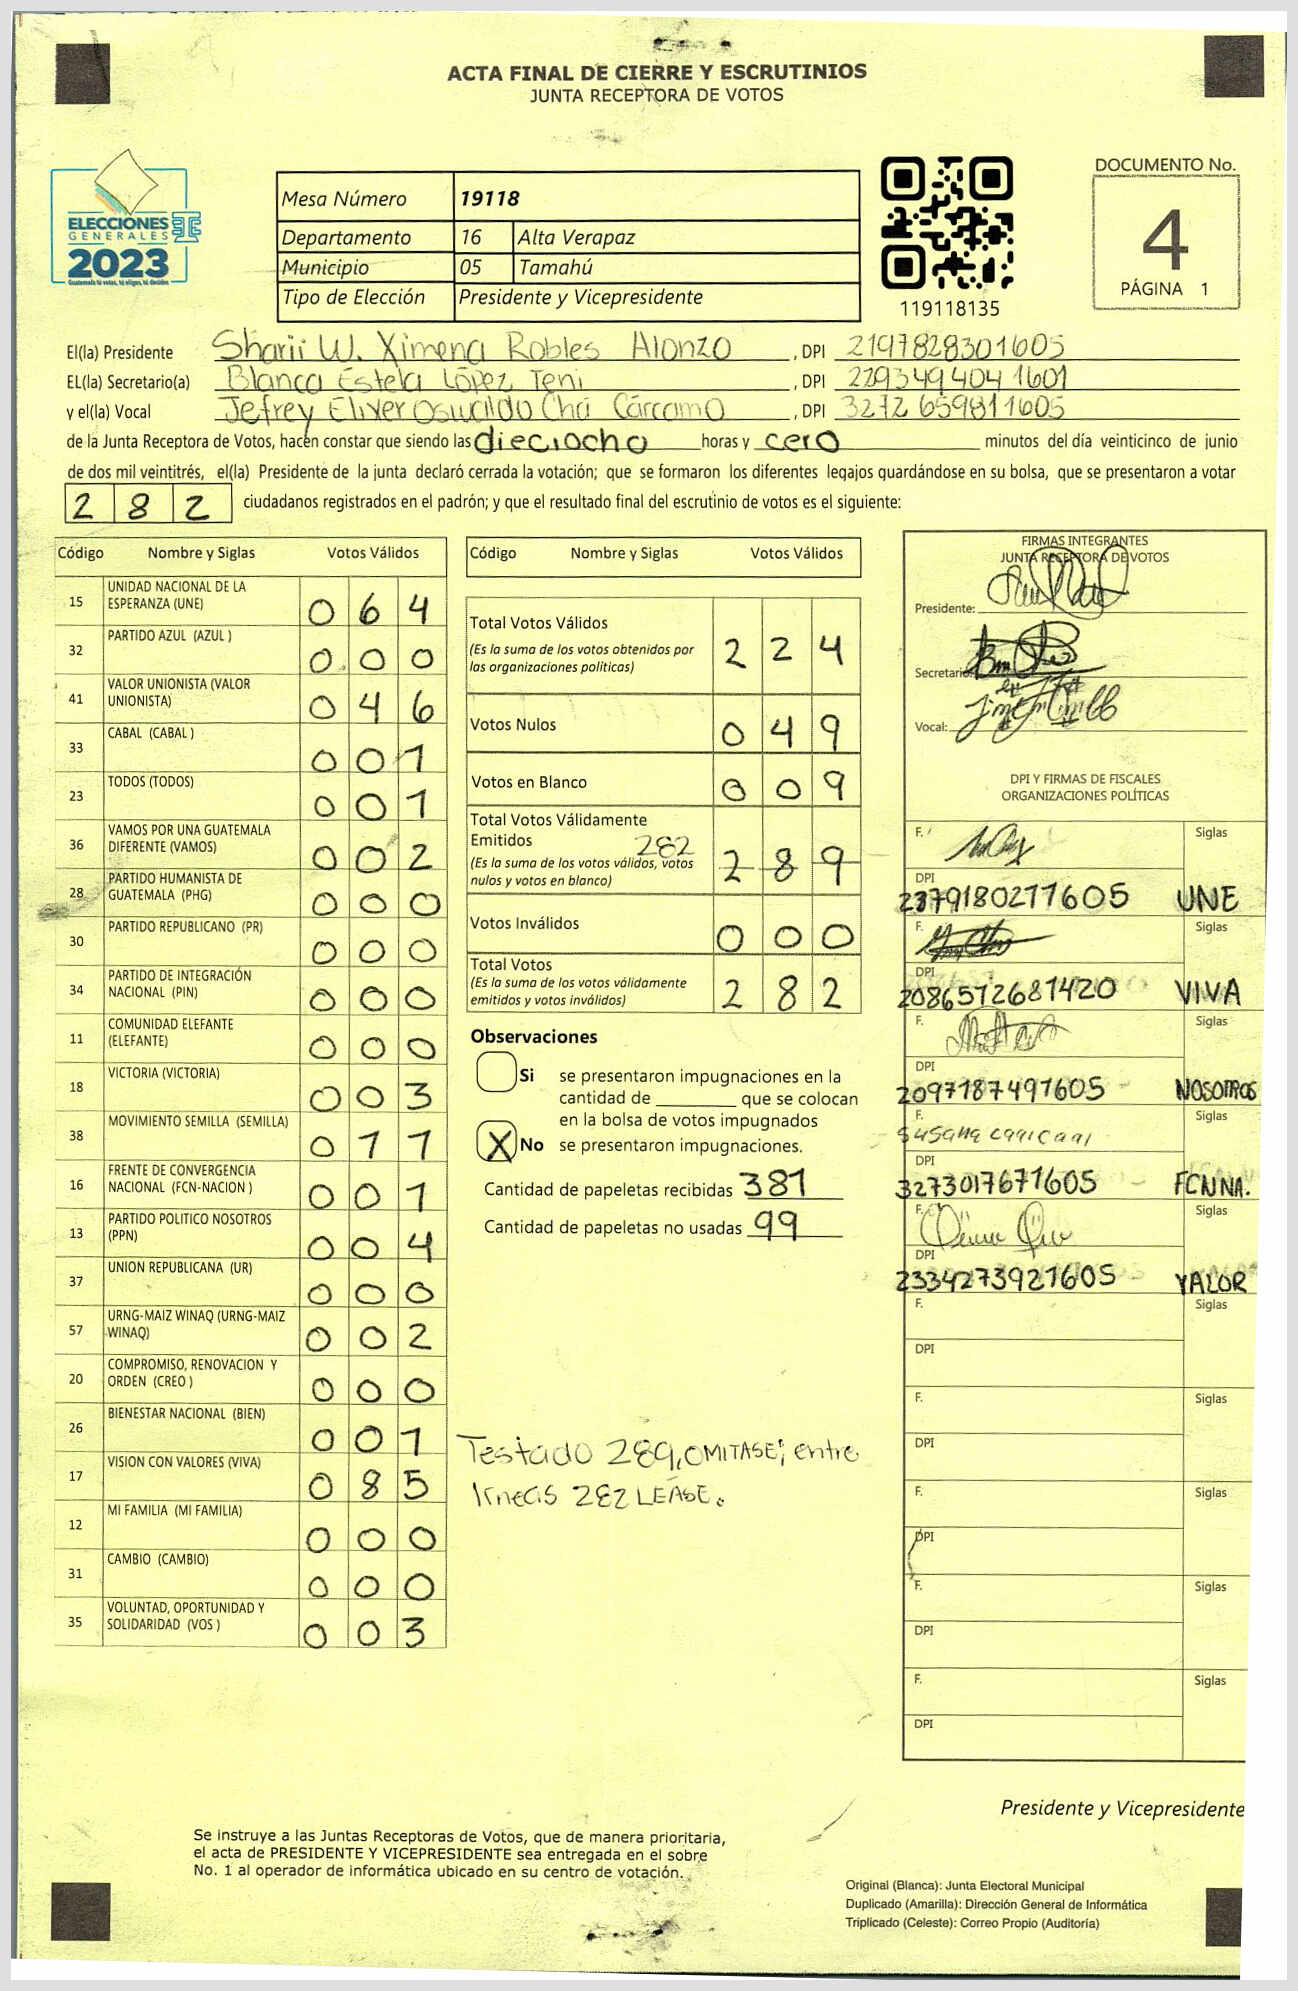 ACTA FINAL DE CIERRE Y ESCRUTINIOS
JUNTA RECEPTORA DE VOTOS
ELECCIONES
GENERALES
2023
Guatemala tú votas, tú eliges, tú decides
Mesa Número 19118
Departamento 16 Alta Verapaz
Municipio 05 Tamahú
Tipo de Elección Presidente y Vicepresidente
119118135
DOCUMENTO No.
4
PÁGINA 1
El(la) Presidente Sharii W. Ximena Robles Alonzo , DPI 2197828301605
EL(la) Secretario(a) Blanca Estela López Teni , DPI 2293494041601
y el(la) Vocal Jefrey Eliver Oswaldo Chá Cárcamo , DPI 3272659811605
de la Junta Receptora de Votos, hacen constar que siendo las dieciocho horas y cero minutos del día veinticinco de junio
de dos mil veintitrés, el(la) Presidente de la junta declaró cerrada la votación; que se formaron los diferentes legajos guardándose en su bolsa, que se presentaron a votar
282 ciudadanos registrados en el padrón; y que el resultado final del escrutinio de votos es el siguiente:
Código Nombre y Siglas Votos Válidos
15 UNIDAD NACIONAL DE LA ESPERANZA (UNE) 064
32 PARTIDO AZUL (AZUL ) 000
41 VALOR UNIONISTA (VALOR UNIONISTA) 046
33 CABAL (CABAL ) 001
23 TODOS (TODOS) 001
36 VAMOS POR UNA GUATEMALA DIFERENTE (VAMOS) 002
28 PARTIDO HUMANISTA DE GUATEMALA (PHG) 000
30 PARTIDO REPUBLICANO (PR) 000
34 PARTIDO DE INTEGRACIÓN NACIONAL (PIN) 000
11 COMUNIDAD ELEFANTE (ELEFANTE) 000
18 VICTORIA (VICTORIA) 003
38 MOVIMIENTO SEMILLA (SEMILLA) 011
16 FRENTE DE CONVERGENCIA NACIONAL (FCN-NACION ) 001
13 PARTIDO POLITICO NOSOTROS (PPN) 004
37 UNION REPUBLICANA (UR) 000
57 URNG-MAIZ WINAQ (URNG-MAIZ WINAQ) 002
20 COMPROMISO, RENOVACION Y ORDEN (CREO ) 000
26 BIENESTAR NACIONAL (BIEN) 001
17 VISION CON VALORES (VIVA) 085
12 MI FAMILIA (MI FAMILIA) 000
31 CAMBIO (CAMBIO) 000
35 VOLUNTAD, OPORTUNIDAD Y SOLIDARIDAD (VOS ) 003
Código Nombre y Siglas Votos Válidos
Total Votos Válidos 224
(Es la suma de los votos obtenidos por
las organizaciones políticas)
Votos Nulos 049
Votos en Blanco 009
Total Votos Válidamente
Emitidos 282
(Es la suma de los votos válidos, votos 289
nulos y votos en blanco)
Votos Inválidos 000
Total Votos
(Es la suma de los votos válidamente 282
emitidos y votos inválidos)
Observaciones
Si se presentaron impugnaciones en la
cantidad de ________ que se colocan
en la bolsa de votos impugnados
X No se presentaron impugnaciones.
Cantidad de papeletas recibidas 381
Cantidad de papeletas no usadas 99
Testado 289, OMITASE; entre
lineas 282 LEASE.
FIRMAS INTEGRANTES
JUNTA RECEPTORA DE VOTOS
Presidente:
Secretario:
Vocal:
DPI Y FIRMAS DE FISCALES
ORGANIZACIONES POLÍTICAS
F. Siglas
DPI
2379180271605 UNE
F. Siglas
DPI
2086572681420 VIVA
F. Siglas
DPI
2097187491605 NOSOTROS
F. Siglas
DPI
3273017671605 FCNNA.
F. Siglas
DPI
2334273921605 VALOR
F. Siglas
DPI
F. Siglas
DPI
F. Siglas
DPI
F. Siglas
DPI
F. Siglas
DPI
Presidente y Vicepresidente
Se instruye a las Juntas Receptoras de Votos, que de manera prioritaria,
el acta de PRESIDENTE Y VICEPRESIDENTE sea entregada en el sobre
No. 1 al operador de informática ubicado en su centro de votación.
Original (Blanca): Junta Electoral Municipal
Duplicado (Amarilla): Dirección General de Informática
Triplicado (Celeste): Correo Propio (Auditoría)